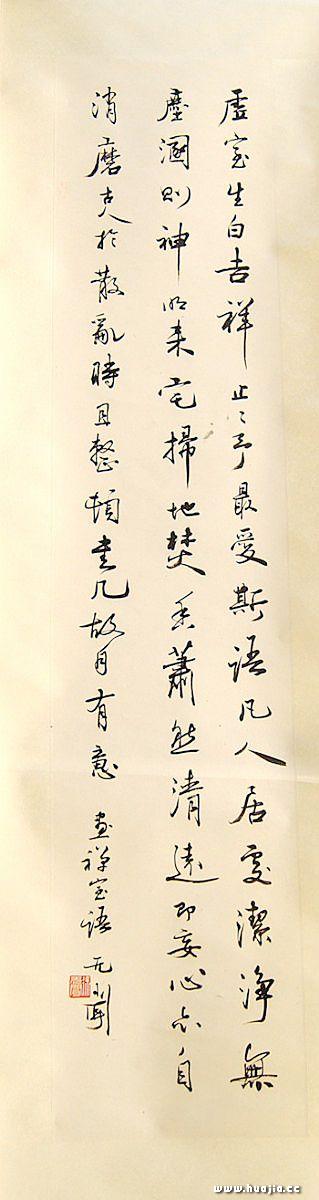 虛室生白吉祥止〻予最愛斯語凡人居處潔淨無
塵溷則神明来宅掃地焚香蕭然清遠即妄心亦自
消磨古人於散亂時且整頓書几故自有意 畫禪室語
www.huajia.cc